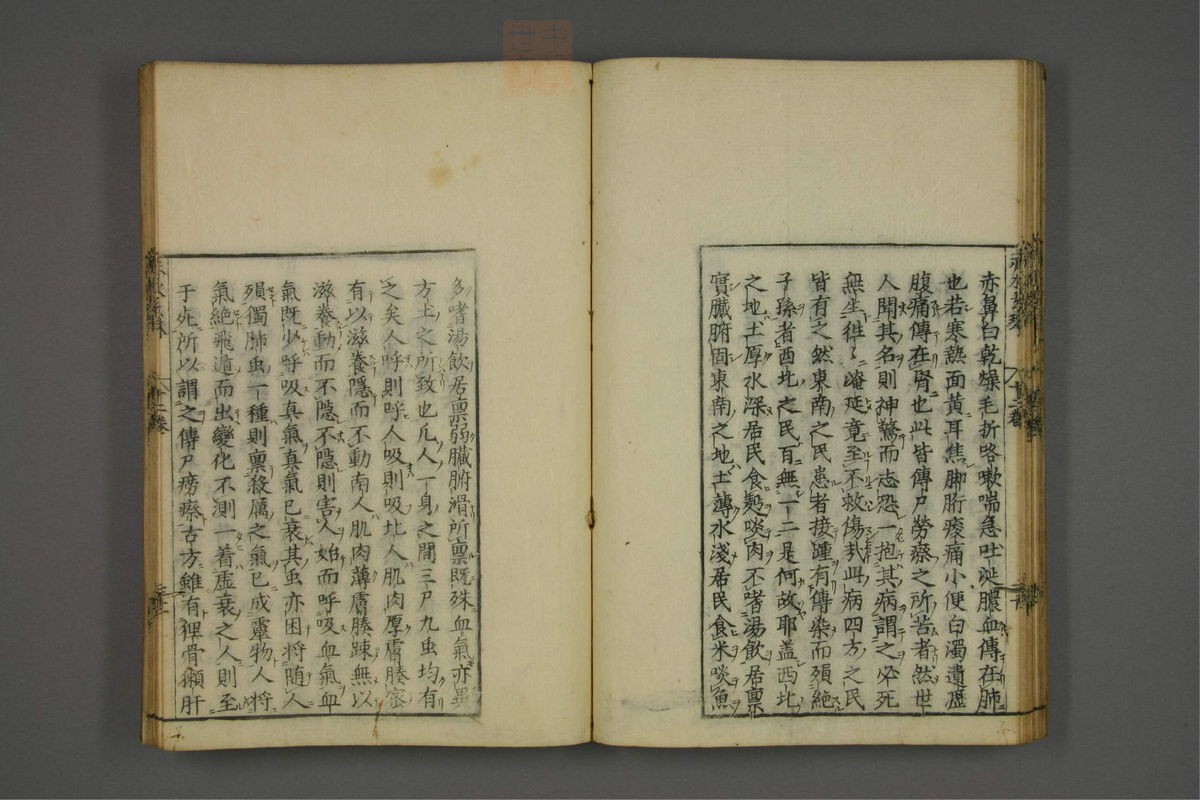 赤鼻白乾燥毛折咯嗽喘急吐涎膿血傳在肺
也若寒熱面黃耳焦脚胻痠痛小便白濁遺瀝
腹痛傳在腎也此皆傳尸勞瘵之所苦者然世
人聞其名則神驚而志恐一抱其病謂之必死
無生徃〻淹延竟至不救傷哉此病四方之民
皆有之然東南之民患者接踵有傳染而殞絶
子孫者西北之民百無一二是何故耶盖西北
之地土厚水深居民食麪啖肉不嗜湯飲居禀
實臟腑固東南之地土薄水淺居民食米啖魚
多嗜湯飲居禀弱臟腑滑所禀既殊血氣亦異
方土之所致也凢人一身之間三尸九虫均有
之矣人呼則呼人吸則吸北人肌肉厚膚腠密
有以滋養隱而不動南人肌肉薄膚腠踈無以
滋養動而不隱不隱則害人始而呼吸血氣血
氣既少呼吸真氣真氣已衰其虫亦困將随人
殞獨肺虫一種則禀殺厲之氣已成靈物人將
氣絶飛遁而出變化不測一着虛衰之人則至
于死所以謂之傳尸癆瘵古方雖有狸骨獺肝